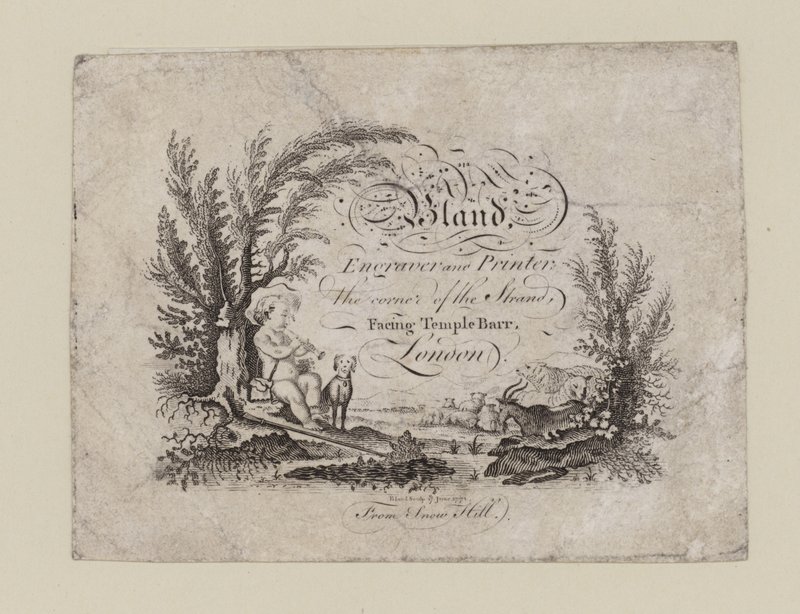 Bland,
Engraver and Printer,
the corner of the Strand,
Facing Temple Barr,
London.
Bland Sculp. June
From Snow Hill.